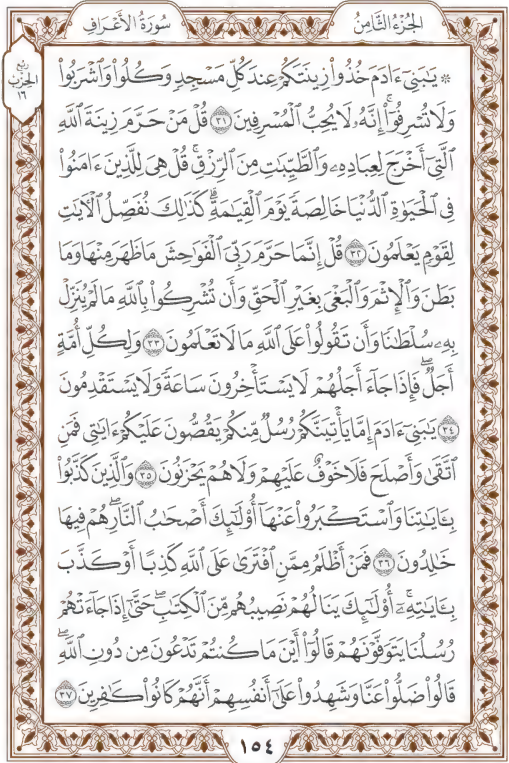 الجُزْءُ الثَّامِنُ
سُورَةُ الأَعْرَافِ
رُبْع
الحِزْب
١٦
۞ يَٰبَنِىٓ ءَادَمَ خُذُوا۟ زِينَتَكُمْ عِندَ كُلِّ مَسْجِدٍ وَكُلُوا۟ وَٱشْرَبُوا۟
وَلَا تُسْرِفُوٓا۟ ۚ إِنَّهُۥ لَا يُحِبُّ ٱلْمُسْرِفِينَ ٣١ قُلْ مَنْ حَرَّمَ زِينَةَ ٱللَّهِ
ٱلَّتِىٓ أَخْرَجَ لِعِبَادِهِۦ وَٱلطَّيِّبَٰتِ مِنَ ٱلرِّزْقِ ۚ قُلْ هِىَ لِلَّذِينَ ءَامَنُوا۟
فِى ٱلْحَيَوٰةِ ٱلدُّنْيَا خَالِصَةً يَوْمَ ٱلْقِيَٰمَةِ ۗ كَذَٰلِكَ نُفَصِّلُ ٱلْءَايَٰتِ
لِقَوْمٍ يَعْلَمُونَ ٣٢ قُلْ إِنَّمَا حَرَّمَ رَبِّىَ ٱلْفَوَٰحِشَ مَا ظَهَرَ مِنْهَا وَمَا
بَطَنَ وَٱلْإِثْمَ وَٱلْبَغْىَ بِغَيْرِ ٱلْحَقِّ وَأَن تُشْرِكُوا۟ بِٱللَّهِ مَا لَمْ يُنَزِّلْ
بِهِۦ سُلْطَٰنًا وَأَن تَقُولُوا۟ عَلَى ٱللَّهِ مَا لَا تَعْلَمُونَ ٣٣ وَلِكُلِّ أُمَّةٍ
أَجَلٌ ۖ فَإِذَا جَآءَ أَجَلُهُمْ لَا يَسْتَأْخِرُونَ سَاعَةً ۖ وَلَا يَسْتَقْدِمُونَ
٣٤ يَٰبَنِىٓ ءَادَمَ إِمَّا يَأْتِيَنَّكُمْ رُسُلٌ مِّنكُمْ يَقُصُّونَ عَلَيْكُمْ ءَايَٰتِى ۙ فَمَنِ
ٱتَّقَىٰ وَأَصْلَحَ فَلَا خَوْفٌ عَلَيْهِمْ وَلَا هُمْ يَحْزَنُونَ ٣٥ وَٱلَّذِينَ كَذَّبُوا۟
بِـَٔايَٰتِنَا وَٱسْتَكْبَرُوا۟ عَنْهَآ أُو۟لَٰٓئِكَ أَصْحَٰبُ ٱلنَّارِ ۖ هُمْ فِيهَا
خَٰلِدُونَ ٣٦ فَمَنْ أَظْلَمُ مِمَّنِ ٱفْتَرَىٰ عَلَى ٱللَّهِ كَذِبًا أَوْ كَذَّبَ
بِـَٔايَٰتِهِۦٓ ۚ أُو۟لَٰٓئِكَ يَنَالُهُمْ نَصِيبُهُم مِّنَ ٱلْكِتَٰبِ ۖ حَتَّىٰٓ إِذَا جَآءَتْهُمْ
رُسُلُنَا يَتَوَفَّوْنَهُمْ قَالُوٓا۟ أَيْنَ مَا كُنتُمْ تَدْعُونَ مِن دُونِ ٱللَّهِ ۖ
قَالُوا۟ ضَلُّوا۟ عَنَّا وَشَهِدُوا۟ عَلَىٰٓ أَنفُسِهِمْ أَنَّهُمْ كَانُوا۟ كَٰفِرِينَ ٣٧
١٥٤